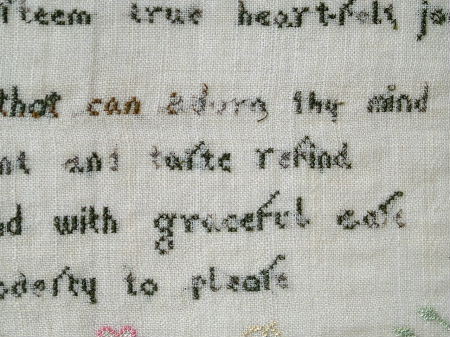 fteem true heart-felt jo
that can adorn thy mind
nt and tafte refind
nd with graceful eafe
oderty to pleafe